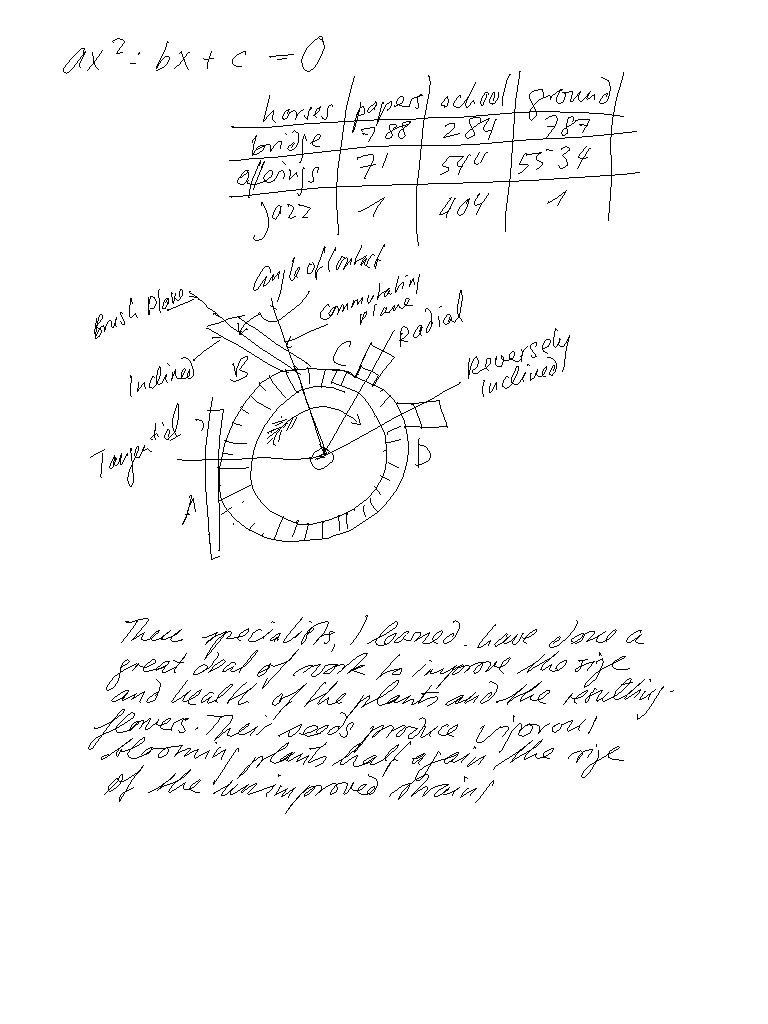 ax² = bx + c = 0
horses papers school ground
bridge 788 284 787
offerings 71 544 5534
jazz 1 404 1
Angle of Contact
Brush Plane
Commutating
plane
Radial
C
Inclined
B
Reversely
Inclined
Tangential
D
A
These specialists, I learned. have done a
great deal of work to improve the size
and health of the plants and the resulting
flowers. Their seeds produce vigorous
blooming plants half again the size
of the unimproved strains